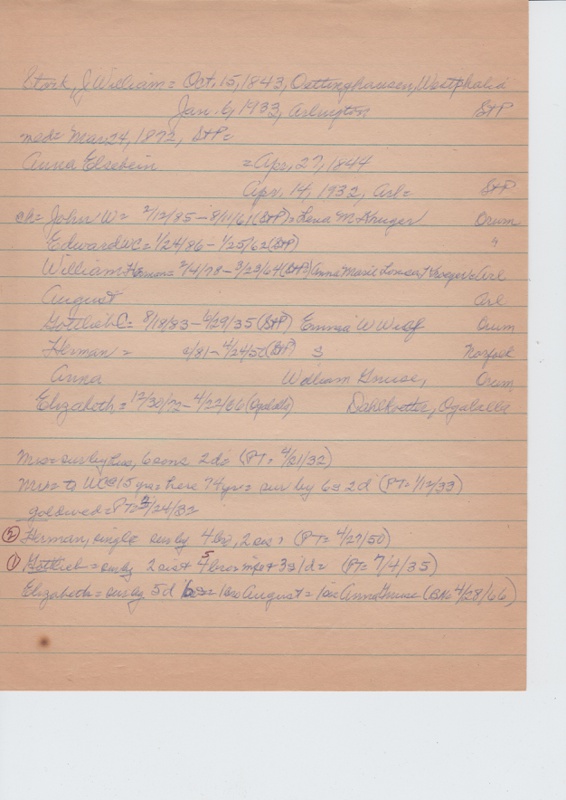 Stork, J William = Oct, 15, 1843, Oettinghausen, Westphalia
Jan. 6, 1933, Arlington StP
med = Mar 24, 1872, StP =
Anna Elsebein = Apr, 27, 1844
Apr, 14, 1932, Arl = StP
ch = John W = 2/12/85 - 8/11/61 (StP) = Lena M Kruger Orum
Edward WC = 1/24/86 - 1/25/62 (StP) "
William Herman = 2/4/78 - 3/29/64 (StP) Anna Marie Louisa Arl
August Arl
Gottlieb C = 8/18/83 - 6/29/35 (StP) Emma W Wulf Orum
Herman = /81 - 4/24/50 (StP) S Norfolk
Anna William Gnuse, Orum,
Elizabeth = 12/30/72 - 4/22/66 (Ogalalla) Dahlkoetter, Ogalalla
Mrs = sur by hus, 6 sons 2 d = (PT = 4/21/32)
Mr = to US @ 15 yrs = here 74 yrs = sur by 6 s 2 d (PT = 1/12/33)
gold wed = PT = 3/24/32
② Herman, single sur by 4 bro, 2 sis = (PT = 4/27/50)
① Gottlieb = sur by 2 sis + 5 bros = mps + 3 s 1 d = (PT = 7/4/35)
Elizabeth = sur by 5 d = 1 bro August = 1 sis Anna Gnuse (4/28/66)